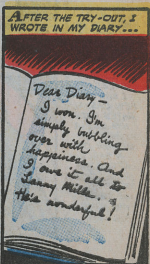 AFTER THE TRY-OUT, I
WROTE IN MY DIARY...
Dear Diary —
I won. I'm
simply bubbling
over with
happiness. And
I owe it all to
Lanny Mills.
He's wonderful!